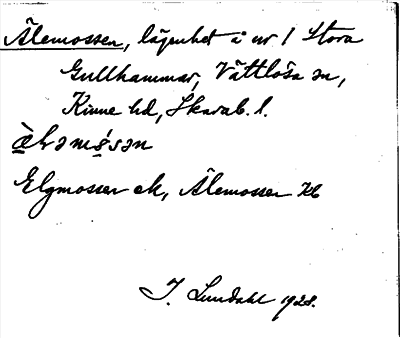 Älemossen, lägenhet å nr 1 Stora
Gullhammar, Vättlösa sn,
Kinne hd, Skarab. l.
æ̀lɘmɷ́sɘn
Elgmossen ek, Älemossen Kb
I. Lundahl 1928.